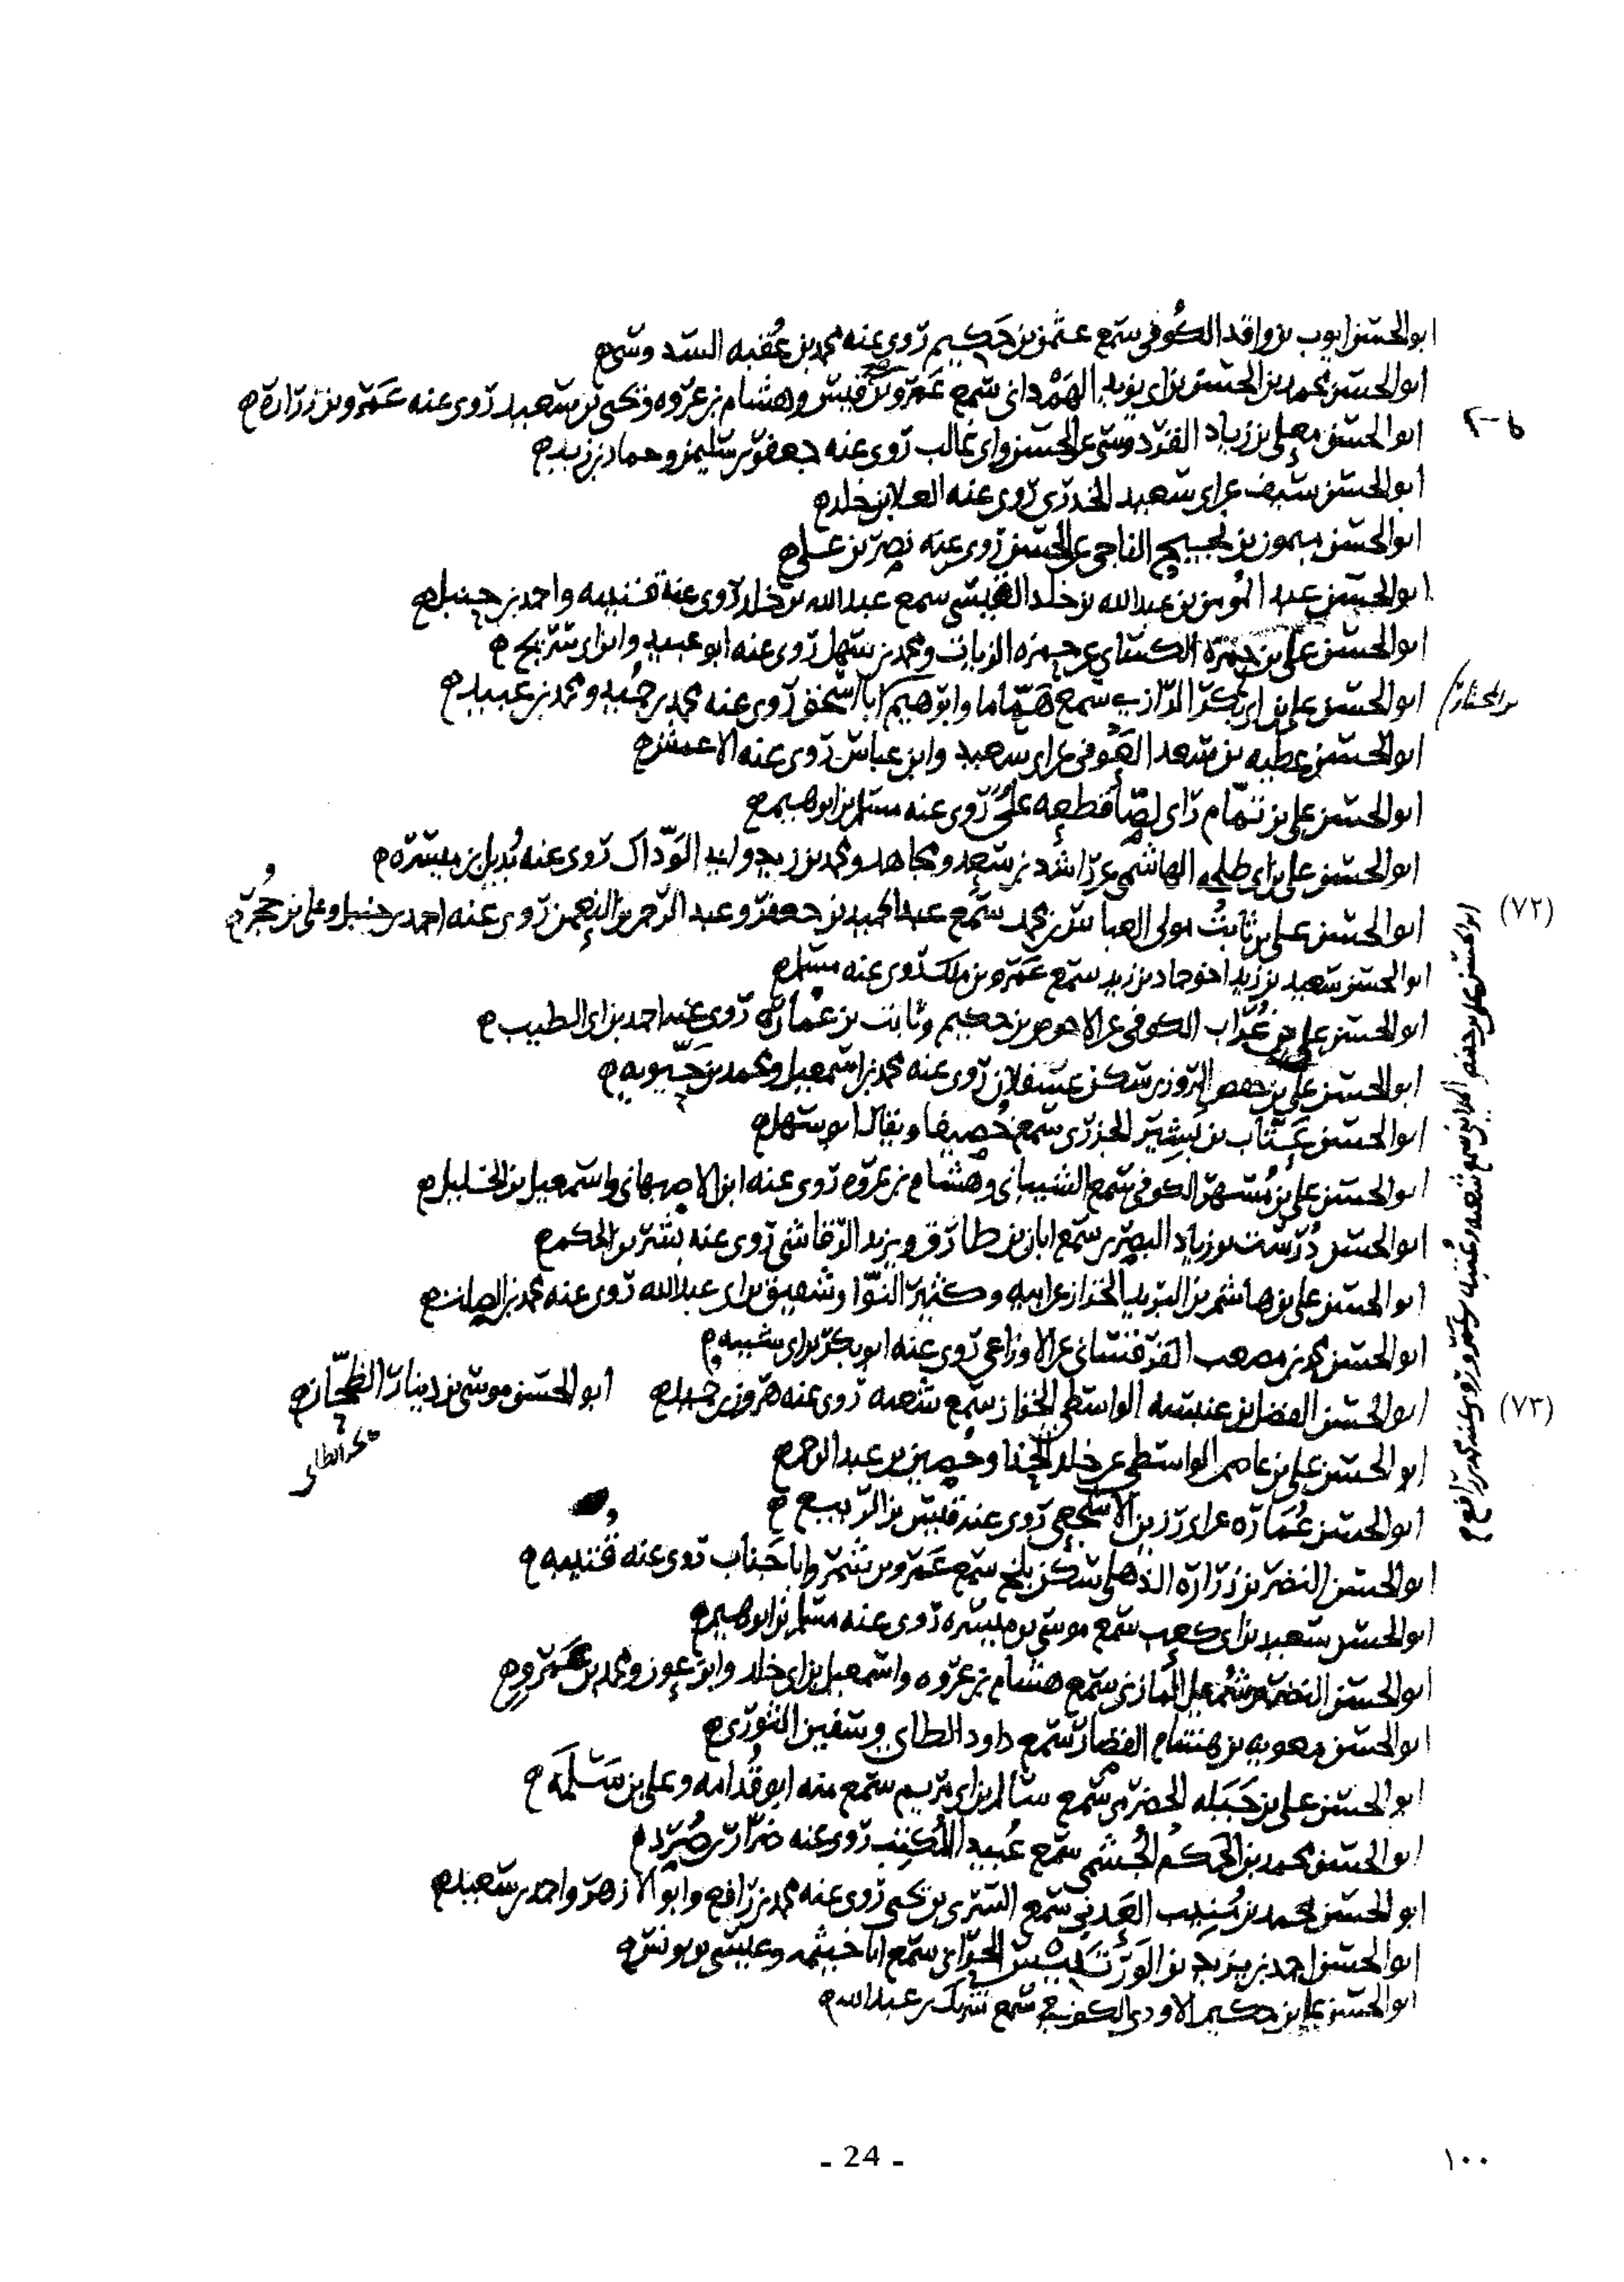 ابو الحسن ايوب بن واقد الكوفى سمع عثمن بن حكيم روى عنه محمد بن عُقبه السدوسى
ابو الحسن محمد بن الحسن بن ابى يزيد الهَمْدانى سمع عَمرو بن قيس وهشام بن عروه ويحيى بن سعيد روى عنه عَمرو بن زرارة
ابو الحسن معلى بن زياد القردوسى عن الحسن وابى غالب روى عنه جعفر بن سليمن وحماد بن زيد
ابو الحسن سيف عن ابى سعيد الخدرى روى عنه العلا بن خلد
ابو الحسن ميمون بن نجيح الناجى عن الحسن روى عنه نصر بن على
ابو الحسن عبد المومن بن عبدالله بن خلد العبسى سمع عبدالله بن خلد روى عنه قتيبه واحمد بن حنبل
ابو الحسن على بن حمزة الكسائى عن حمزه الزيات ومحمد بن سهل روى عنه ابو عبيد وابن ابى سريج
ابو الحسن على بن ابى بكر الرازى سمع همّاما وابرهيم ابا اسحق روى عنه محمد بن حميد ومحمد بن عبيد
ابو الحسن عطيه بن سعد العَوفى عن ابى سعيد وابن عباس روى عنه الاعمش
ابو الحسن على بن تمّام راى لصّا قطعه علىّ روى عنه مسلم بن ابرهيم
ابو الحسن على بن ابى طلحه الهاشمى عن راشد بن سعد ومجاهد ومحمد بن زيد وابى الوّداك روى عنه بُديل بن ميسره
(٧٢)
ابو الحسن على بن ثابت مولى العباس بن محمد سمع عبد الحميد بن جعفر وعبد الرحمن بن النعمن روى عنه احمد بن حنبل وعلى بن حُجر
ابو الحسن سعيد بن زيد اخو حماد بن زيد سمع عَمرو بن ملك روى عنه مسلم
ابو الحسن على بن غُراب الكوفى عن الاحوص بن حكيم وثابت بن عُمارة روى عنه احمد بن ابى الطيب
ابو الحسن على بن حفص المروزى سكن عسقلان روى عنه محمد بن اسمعيل ومحمد بن حيّويه
ابو الحسن عَتّاب بن بشير الجزرى سمع خُصيفا ويقال ابو سهل
ابو الحسن على بن مُسهر الكوفى سمع الشيبانى وهشام بن عروه روى عنه ابن الاصبهانى واسمعيل بن الخليل
ابو الحسن دُرست بن زياد البصرى سمع ابان بن طارق ويزيد الرقاشى روى عنه بشر بن الحكم
ابو الحسن على بن هاشم بن البريد الخزاز عن ابيه وكثير النوّا وشقيق بن ابى عبدالله روى عنه محمد بن الصلت
ابو الحسن محمد بن مصعب القرقسانى عن الاوزاعى روى عنه ابو بكر بن ابى شيبه
(٧٣)
ابو الحسن الفضل بن عنبسه الواسطى الخزاز سمع شعبه روى عنه هرون بن حميد ابو الحسن موسى بن دينار الطحّان
ابو الحسن على بن عاصم الواسطى عن خلد الحذا وحُصين بن عبد الرحمن
ابو الحسن عُمَارَه عن ابى رزين الاشجعى روى عنه قيس بن الربيع
ابو الحسن النضر بن زرارة الذهلى سكن بلخ سمع عَمرو بن شمر وابا جَناب روى عنه قُتيبه
ابو الحسن سعيد بن ابى كعب سمع موسى بن ميسره روى عنه مسلم بن ابرهيم
ابو الحسن النضر بن شُميل المازنى سمع هشام بن عروه واسمعيل بن ابى خلد وابن عون ومحمد بن عَمرو
ابو الحسن معويه بن هشام القصار سمع داود الطاى وسفين الثورى
ابو الحسن على بن جَبَله الحضرمى سمع سالم بن ابى مريم سمع منه ابو قُدامه وعلى بن سَلَمَه
ابو الحسن محمد بن الحكم الجُشمى سمع عُبيد المُكتِب روى عنه ضرار بن صُرد
ابو الحسن محمد بن مُنيب العَدنى سمع السرى بن يحيى روى عنه محمد بن رافع وابو الازهر واحمد بن سعيد
ابو الحسن احمد بن يزيد بن الوَرْتَنّيس الحرّانى سمع ابا خيثمه وعيسى بن يونس
ابو الحسن على بن حكيم الاودى الكوفى سمع شريك بن عبدالله
ابو الحسن على بن حفص المداينى سمع شعبه روى عنه محمد بن رافع
- 24 -
١٠٠